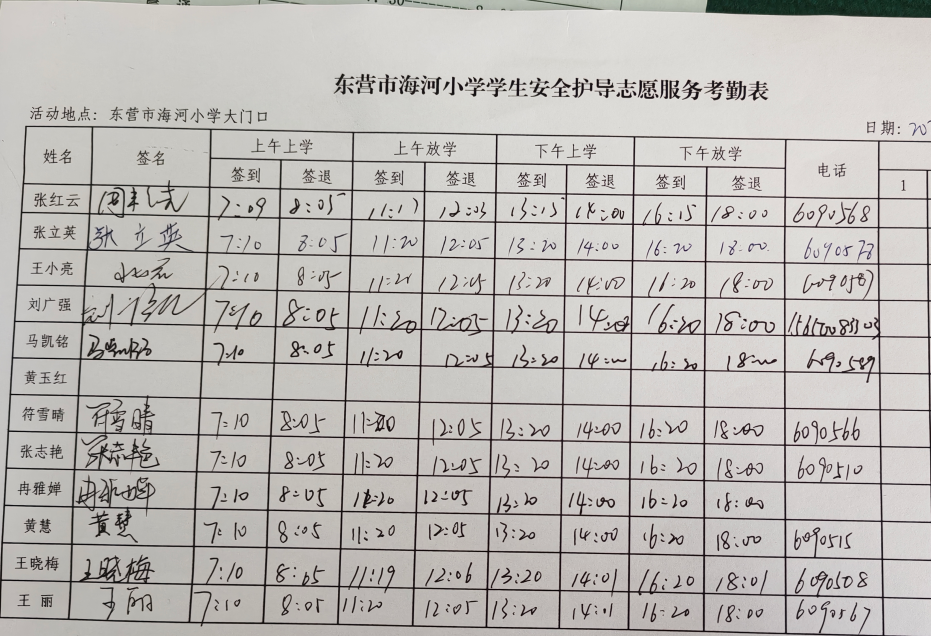 东营市海河小学学生安全护导志愿服务考勤表
活动地点：东营市海河小学大门口 日期：
姓名 签名 上午上学 上午放学 下午上学 下午放学 电话 1
签到 签退 签到 签退 签到 签退 签到 签退
张红云 7:09 8:05 11:17 12:03 13:15 14:00 16:15 18:00 6090568
张立英 张立英 7:10 8:05 11:20 12:05 13:20 14:00 16:20 18:00
王小亮 7:10 8:05 11:20 12:05 13:20 14:00 16:20 18:00
刘广强 7:10 8:05 11:20 12:05 13:20 14:00 16:20 18:00
马凯铭 马凯铭 7:10 8:05 11:20 12:05 13:20 14:00 16:20 18:00 6090589
黄玉红
符雪晴 符雪晴 7:10 8:05 11:20 12:05 13:20 14:00 16:20 18:00 6090566
张志艳 张志艳 7:10 8:05 11:20 12:05 13:20 14:00 16:20 18:00 6090510
冉雅婵 冉雅婵 7:10 8:05 11:20 12:05 13:20 14:00 16:20 18:00
黄慧 黄慧 7:10 8:05 11:20 12:05 13:20 14:00 16:20 18:00 6090515
王晓梅 王晓梅 7:10 8:05 11:19 12:06 13:20 14:01 16:20 18:01 6090508
王丽 王丽 7:10 8:05 11:20 12:05 13:20 14:01 16:20 18:00 6090567